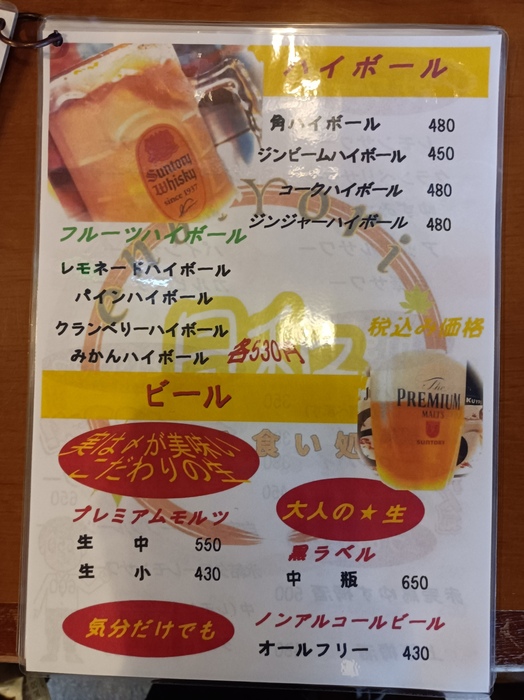 ハイボール
Suntory
Whisky
since 1937
角ハイボール 480
ジンビームハイボール 450
コークハイボール 480
ジンジャーハイボール 480
フルーツハイボール
レモネードハイボール
パインハイボール
クランベリーハイボール
みかんハイボール 各530円
税込み価格
ビール
The
PREMIUM
MALT'S
SUNTORY
実は〆が美味い
こだわりの生
食い処
プレミアムモルツ
生 中 550
生 小 430
大人の★生
黒ラベル
中 瓶 650
気分だけでも
ノンアルコールビール
オールフリー 430